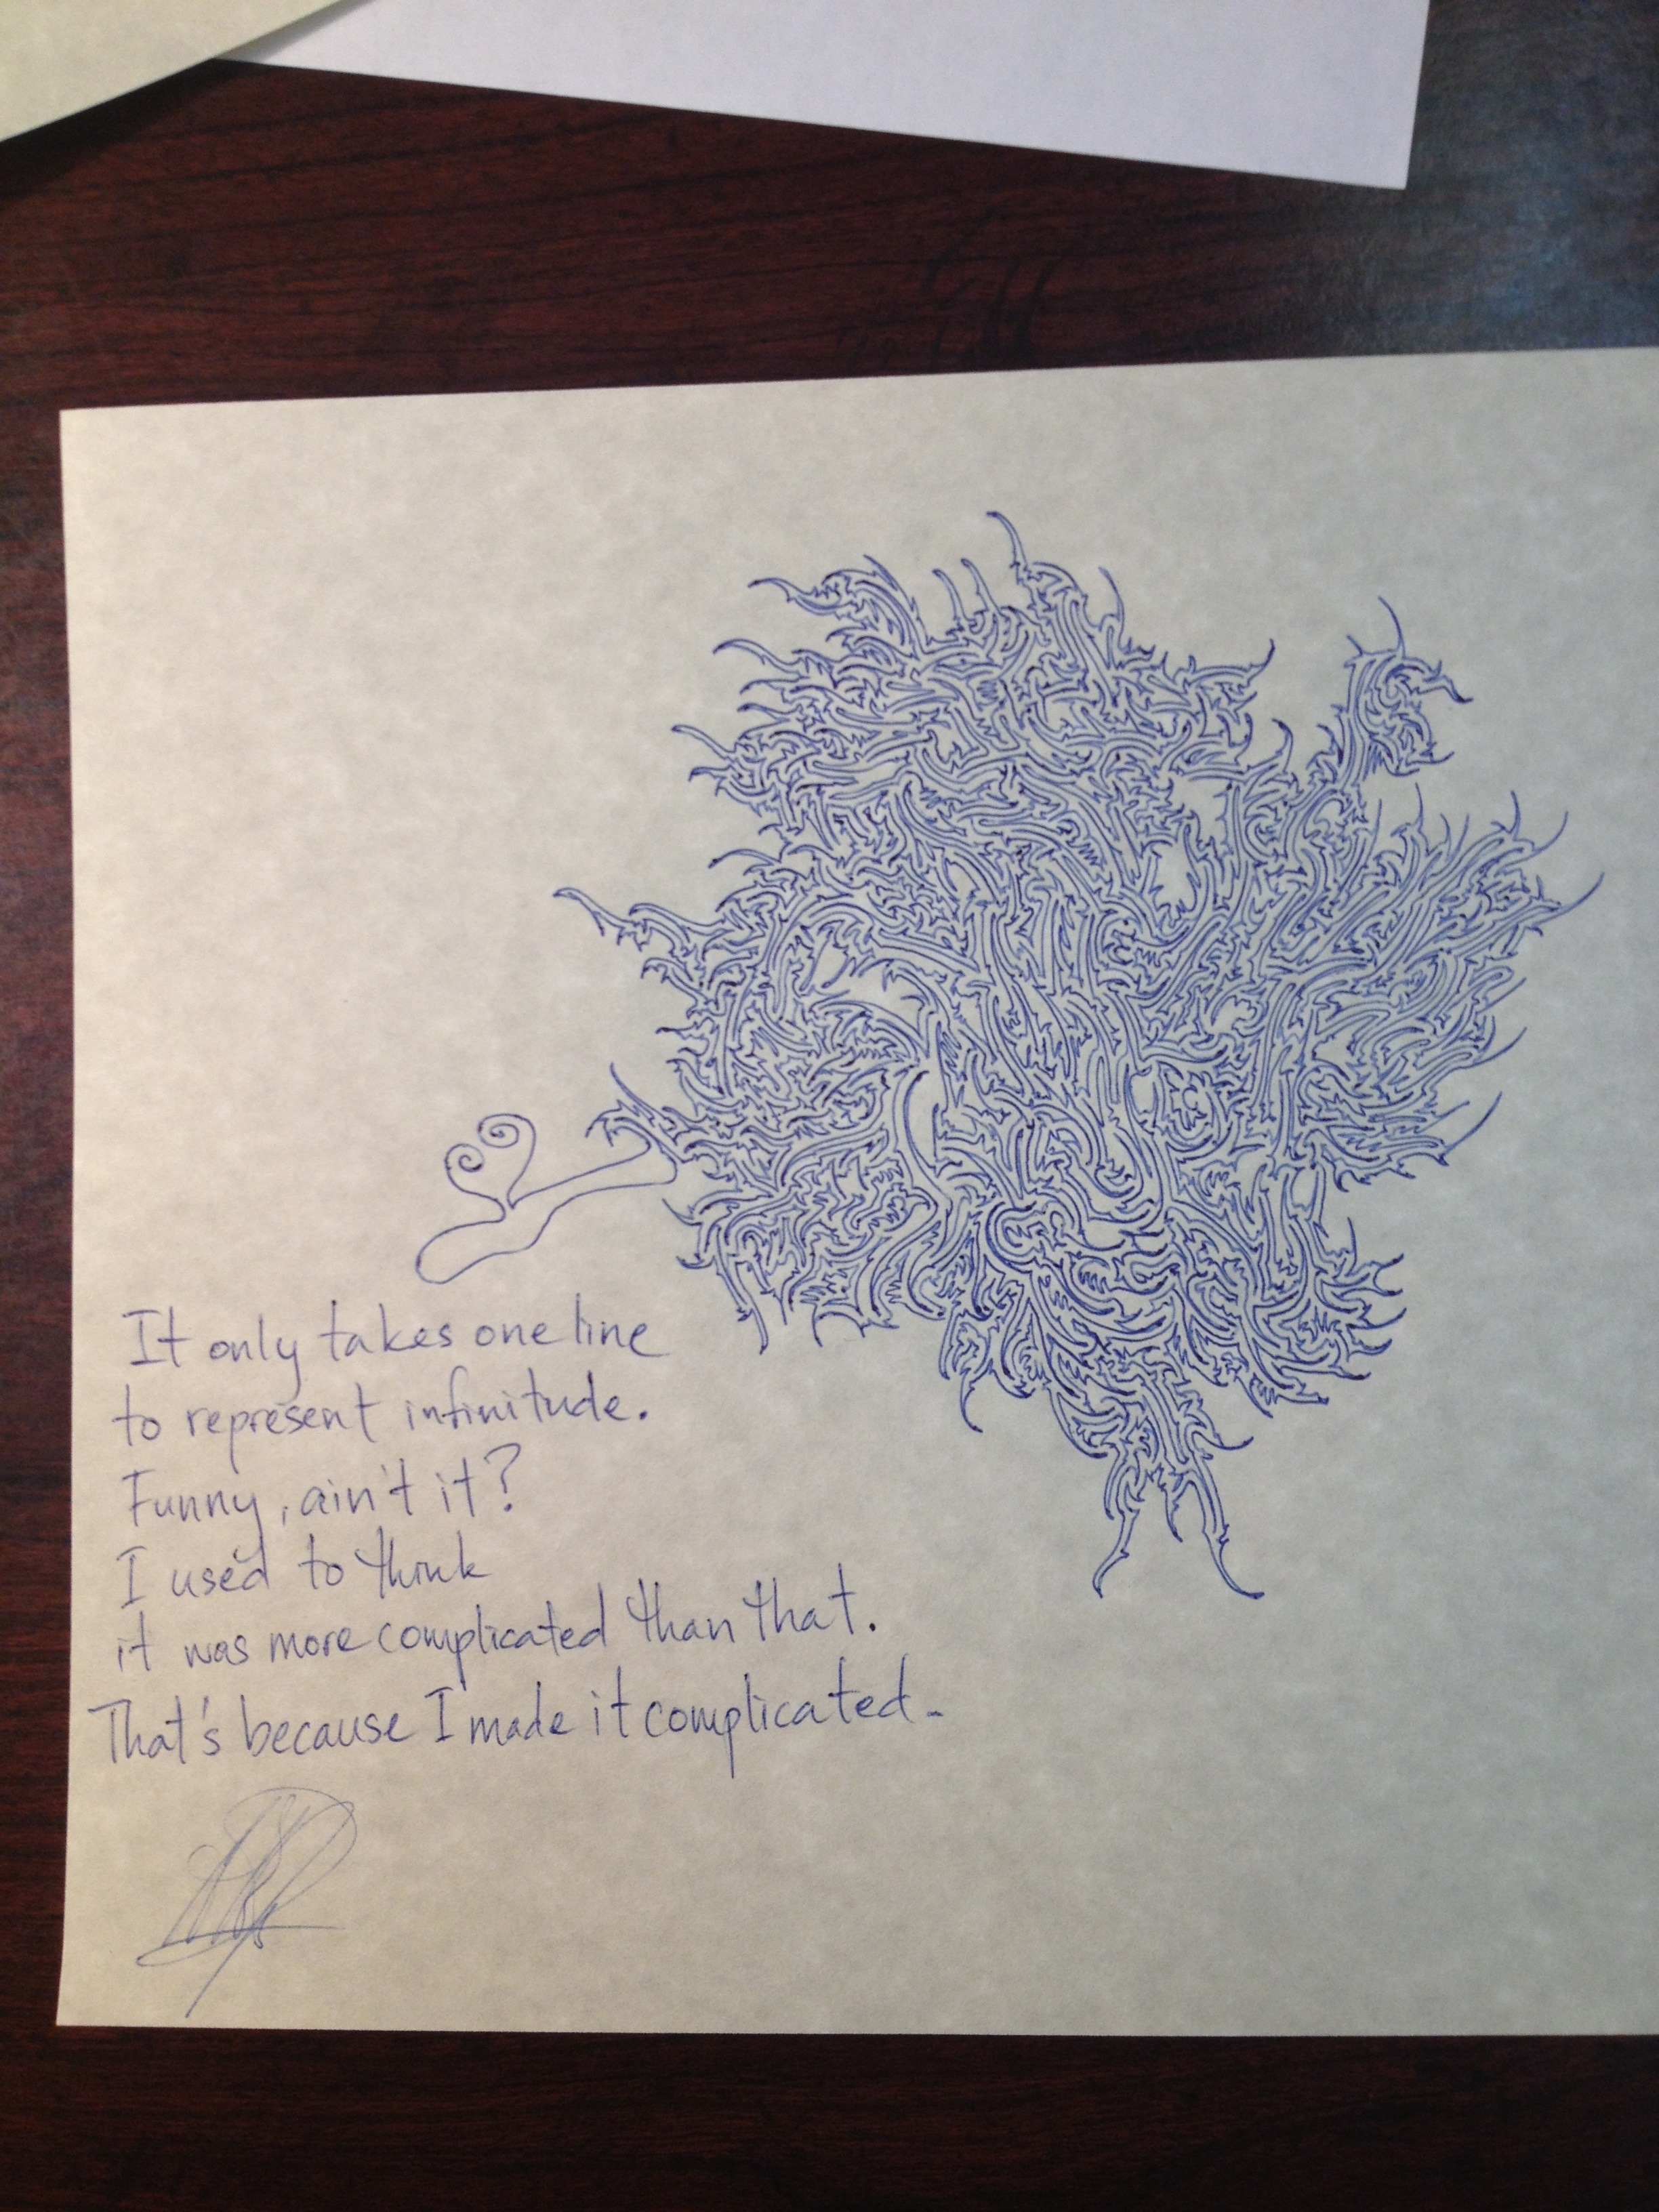 It only takes one line
to represent infinitude.
Funny, ain't it?
I used to think
it was more complicated than that.
That's because I made it complicated.